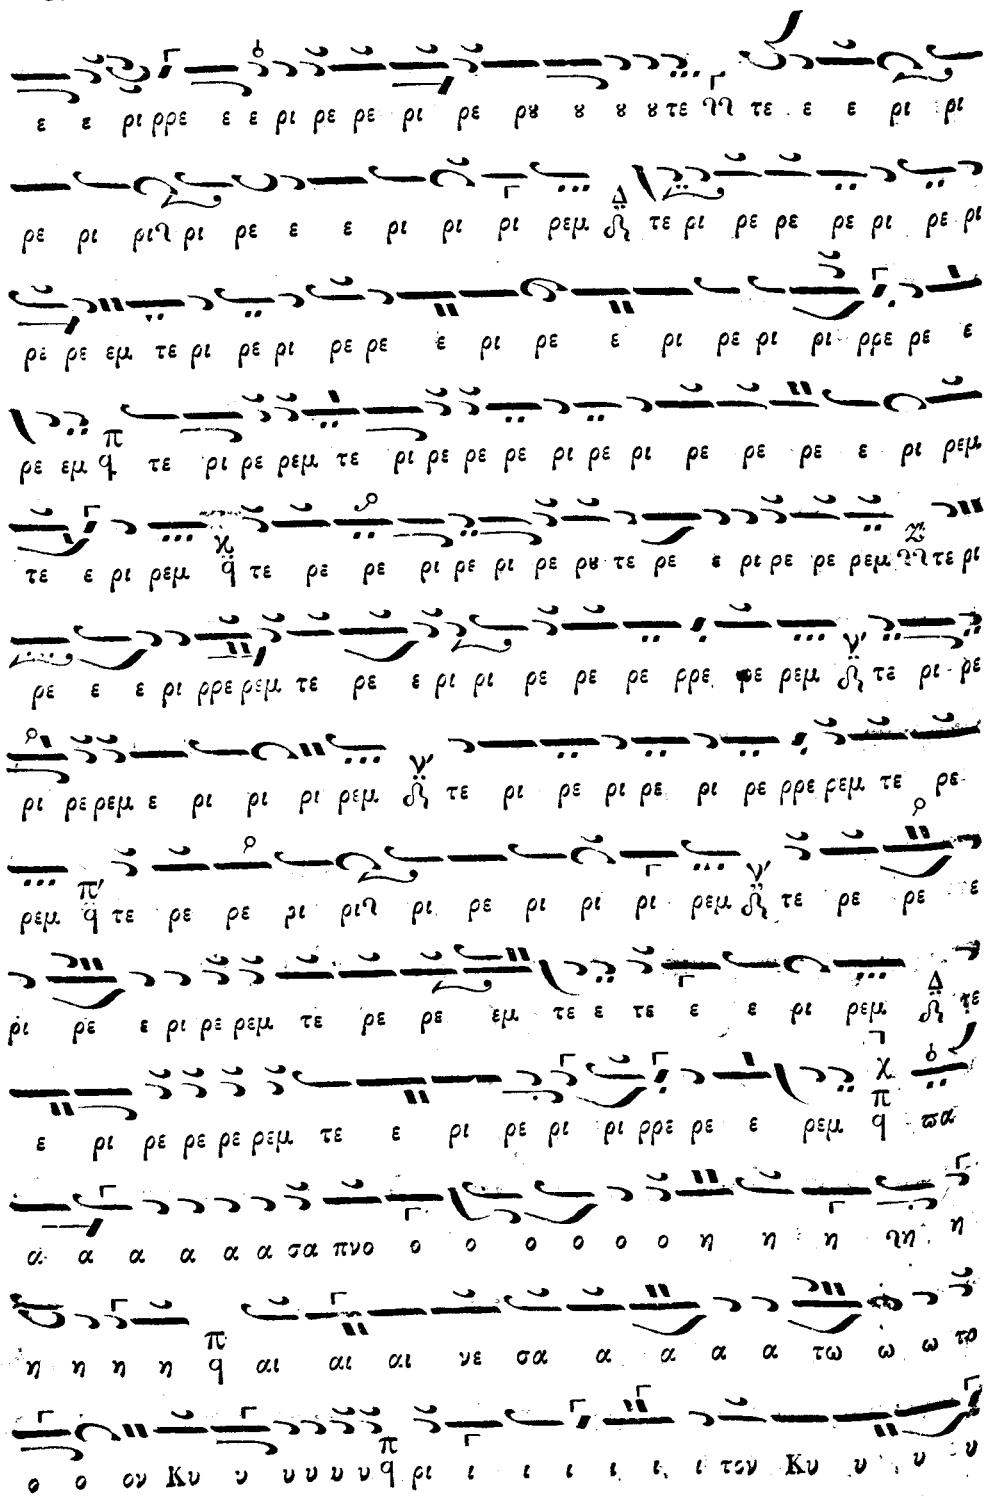 ε ε ρι ρρε ε ε ρι ρε ρε ρι ρε ρȣ ȣ ȣ ȣ τε τε ε ε ρι ρι
ρε ρι ρι ρι ρε ε ε ρι ρι ρι ρεμ Δ τε ρι ρε ρε ρε ρι ρε ρι
ρε ρε εμ τε ρι ρε ρι ρε ρε ε ρι ρε ε ρι ρε ρι ρι ρρε ρε ε
ρε εμ π q τε ρι ρε ρεμ τε ρι ρε ρε ρε ρι ρε ρι ρε ρε ρε ε ρι ρεμ
τε ε ρι ρεμ ϰ q τε ρε ρε ρι ρε ρι ρε ρȣ τε ρε ε ρι ρε ρε ρεμ Z τε ρι
ρε ε ε ρι ρρε ρεμ τε ρε ε ρι ρι ρε ρε ρε ρρε ρε ρεμ ν' τε ρι ρε
ρι ρε ρεμ ε ρι ρι ρι ρεμ ν' τε ρι ρε ρι ρε ρι ρε ρρε ρεμ τε ρε
ρεμ π' q τε ρε ρε ρι ρι ρι ρε ρι ρι ρι ρεμ ν' τε ρε ρε ε
ρι ρε ε ρι ρε ρεμ τε ρε ρε εμ τε ε τε ε ε ρι ρεμ Δ τε
ε ρι ρε ρε ρε ρεμ τε ε ρι ρε ρι ρι ρρε ρε ε ρεμ χ π q ϖα
α α α α α α σα πνο ο ο ο ο ο ο η η η η η
η η η η π q αι αι αι νε σα α α α α τω ω ω το
ο ο ον Κυ υ υ υ υ υ π q ρι ι ι ι ι ι ι τον Κυ υ υ υ